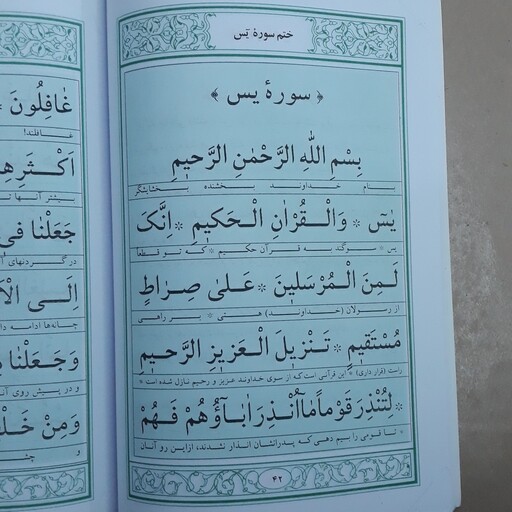 ختم سورهٔ یٓس
﴿ سورهٔ یس ﴾
بِسْمِ اللّٰهِ الرَّحْمٰنِ الرَّحیٖمِ
بنام خداوند بخشنده بخشایشگر
یٰسٓ * وَالْقُرْاٰنِ الْحَكیٖمِ * اِنَّكَ
یس * سوگند به قرآن حکیم * که تو قطعاً
لَمِنَ الْمُرْسَلیٖنَ * عَلیٰ صِراطٍ
از رسولان (خداوند) هستی * بر راهی
مُسْتَقیٖمٍ * تَنْزیٖلَ الْعَزیٖزِ الرَّحیٖمِ
راست (قرار داری) * این قرآنی است که از سوی خداوند عزیز و رحیم نازل شده است *
* لِتُنْذِرَ قَوْماً مٰا اُنْذِرَ اٰبٰاؤُهُمْ فَهُمْ
* تا قومی را بیم دهی که پدرانشان انذار نشدند، ازاین رو آنان
۴۲
غٰافِلُونَ *
غافلند!
اَكْثَرِهِ
بیشتر آنها
جَعَلْنٰا فیٖ
در گردنهای
اِلَی الْاَ
چانه‌ها ادامه
وَجَعَلْنٰا
و در پیش روی
وَمِنْ خَلْ
و